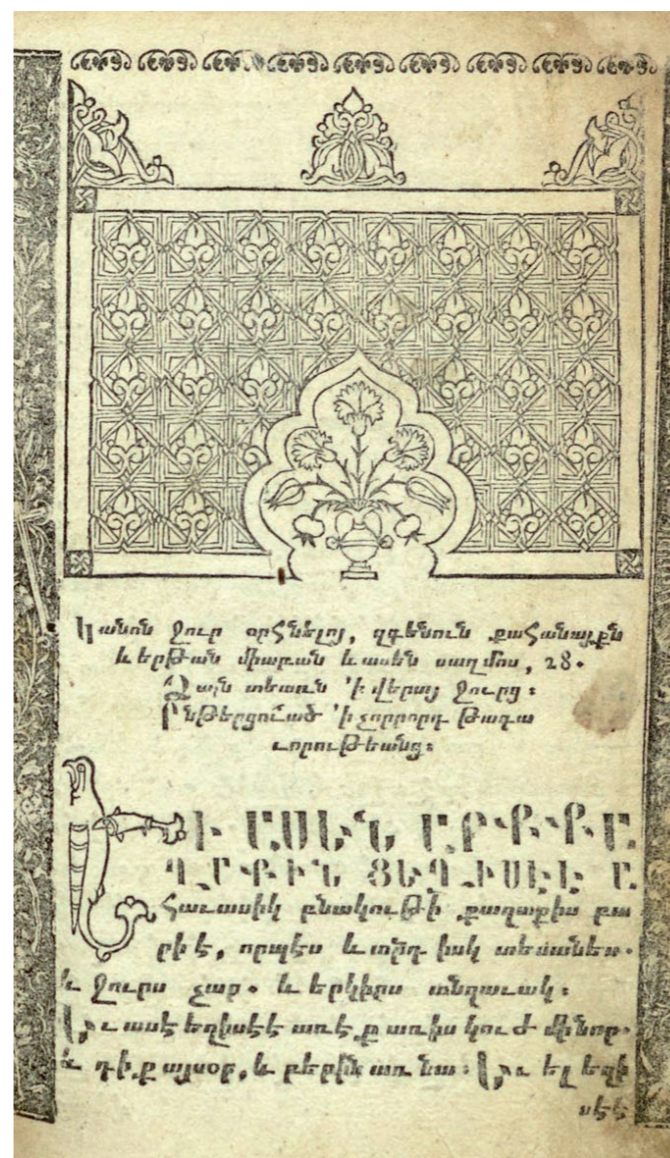 Կանոն ջուր օրհնելոյ, զգենուն քահանայքն
և երթան միաբան և ասեն սաղմոս, 28.
Ձայն տեառն ՚ի վերայ ջուրց։
Ընթերցուած ՚ի չորրորդ թագա
ւորութեանց։
Ի ԱՍԵՆ ԱՐՔ ՔԱ
ՂԱՔԻՆ ՑԵՂԻՍԷԷ Ա
հաւասիկ բնակութի քաղաքիս բա
րի է, որպէս և տէրդ իսկ տեսանես.
և ջուրս չար. և երկիրս անզաւակ։
Եւ ասէ եղիսէէ առէք առիս կուժ մինոր.
և դիք այսօր, և բերին առ նա։ Եւ ել եղի
սէէ